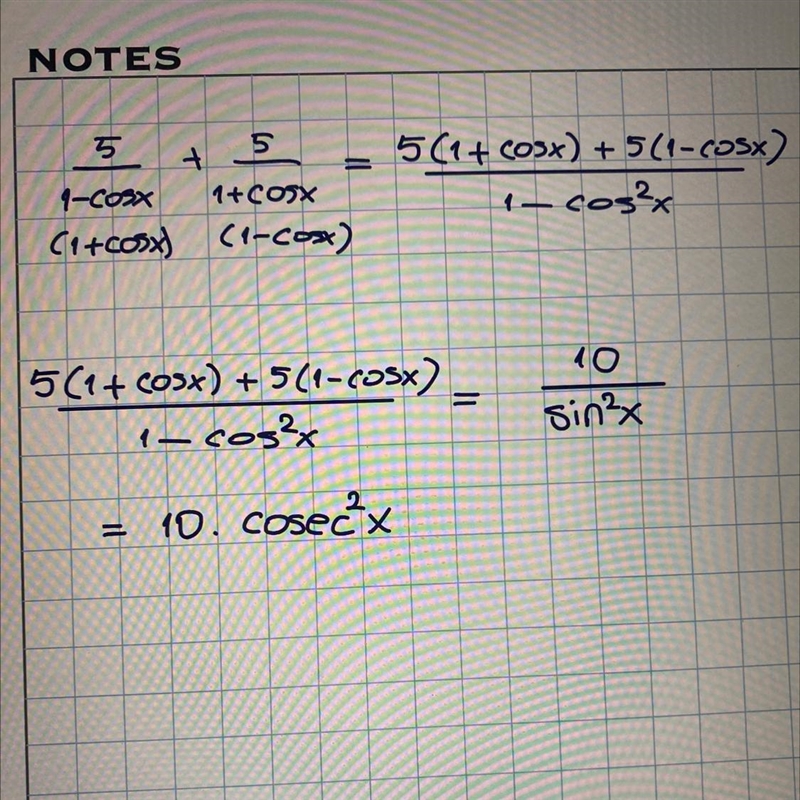 NOTES
5/(1-cosx) + 5/(1+cosx) = (5(1+cosx) + 5(1-cosx))/(1-cos²x)
(1+cosx) (1-cosx)
(5(1+cosx) + 5(1-cosx))/(1-cos²x) = 10/sin²x
= 10. cosec²x